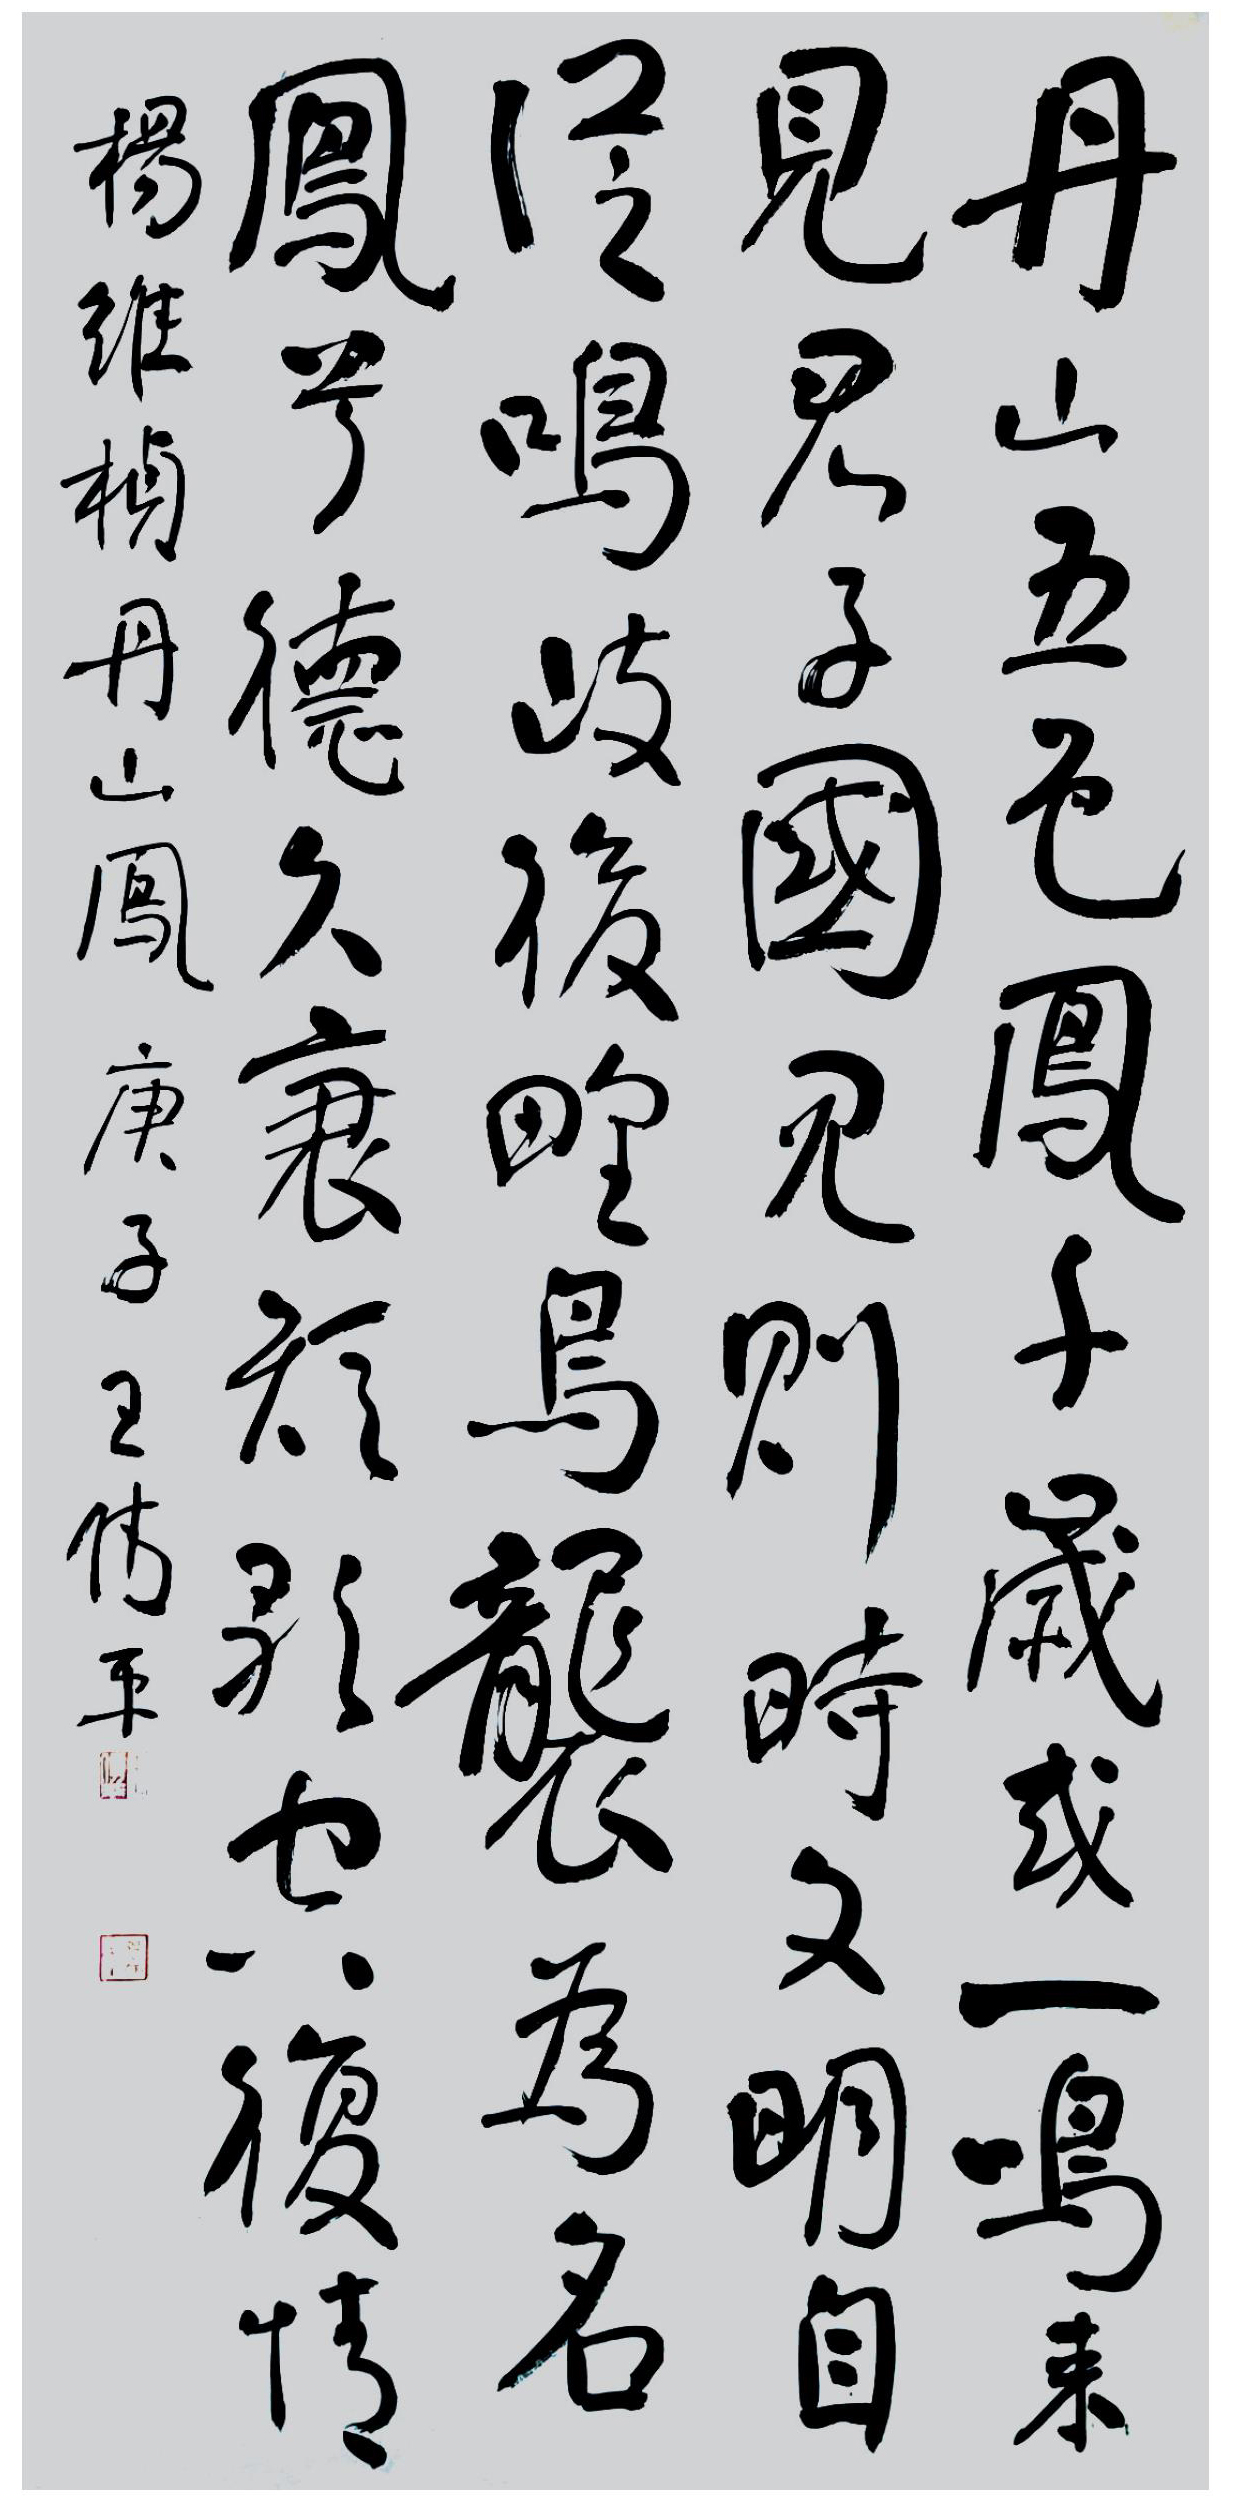 丹山五色鳳千歲或一鳴來
見君子國見則時文明自
從鳴岐後野鳥襲為名
鳳乎德久衰也復情
楊維楨丹山鳳庚子王平